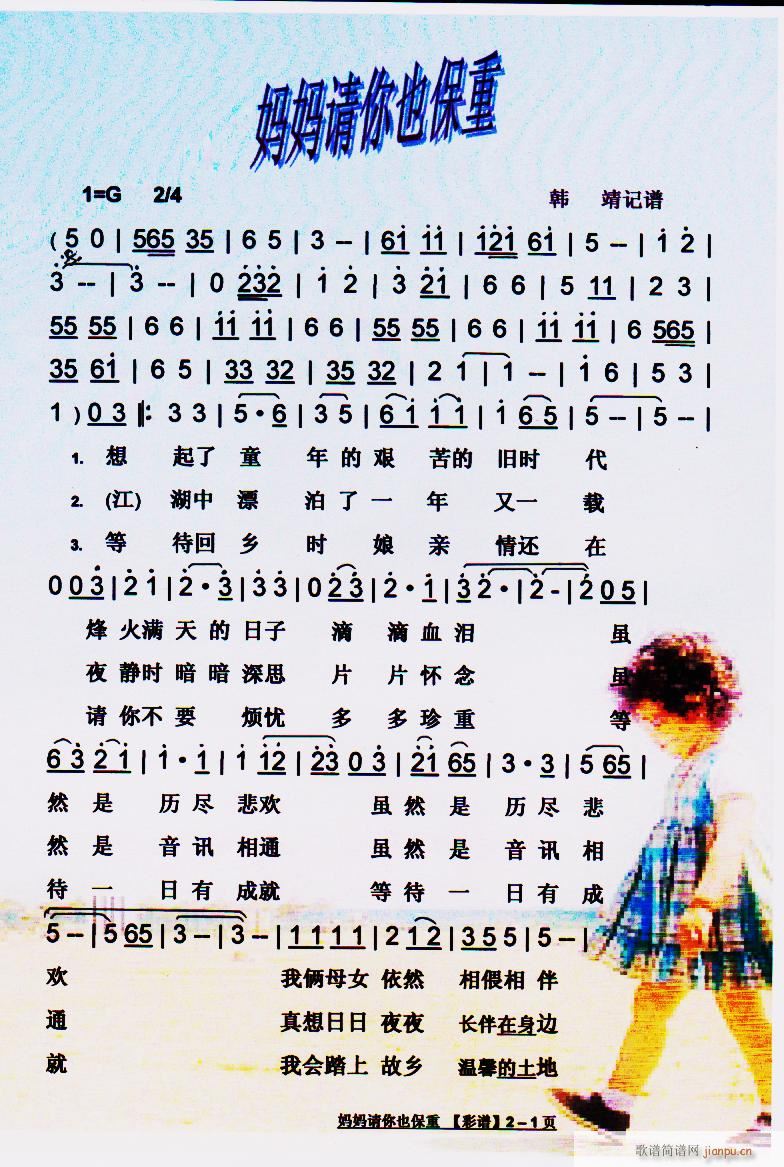 妈妈请你也保重
1=G 2/4 韩 靖记谱
(5 0 | 565 35 | 6 5 | 3 -- | 61 11 | 121 61 | 5 -- | 1 2 |
3 -- | 3 -- | 0 232 | 1 2 | 3 21 | 6 6 | 5 11 | 2 3 |
55 55 | 6 6 | 11 11 | 6 6 | 55 55 | 6 6 | 11 11 | 6 565 |
35 61 | 6 5 | 33 32 | 35 32 | 2 1 | 1 -- | 1 6 | 5 3 |
1 ) 0 3 |: 3 3 | 5·6 | 3 5 | 6 1 1 1 | 1 6 5 | 5 -- | 5 -- |
1. 想 起了 童 年的 艰 苦的 旧时 代
2. (江) 湖中 漂 泊了 一 年 又一 载
3. 等 待回 乡 时 娘 亲 情还 在
0 0 3 | 2 1 | 2·3 | 3 3 | 0 2 3 | 2·1 | 3 2· | 2- | 2 0 5 |
烽 火满 天 的 日子 滴 滴 血 泪 虽
夜 静时 暗 暗 深思 片 片 怀 念 虽
请 你不 要 烦忧 多 多 珍 重 等
6 3 2 1 | 1·1 | 1 12 | 23 0 3 | 21 65 | 3·3 | 5 65 |
然 是 历 尽 悲欢 虽 然 是 历 尽 悲
然 是 音 讯 相通 虽 然 是 音 讯 相
待 一 日 有 成就 等 待 一 日 有 成
5 -- | 5 65 | 3 -- | 3 -- | 1 1 1 1 | 2 1 2 | 3 5 5 | 5 -- |
欢 我俩母女 依然 相偎相 伴
通 真想日日 夜夜 长伴在身边
就 我会踏上 故乡 温馨的土地
妈妈请你也保重 【彩谱】2－1页
歌谱简谱网 jianpu.cn